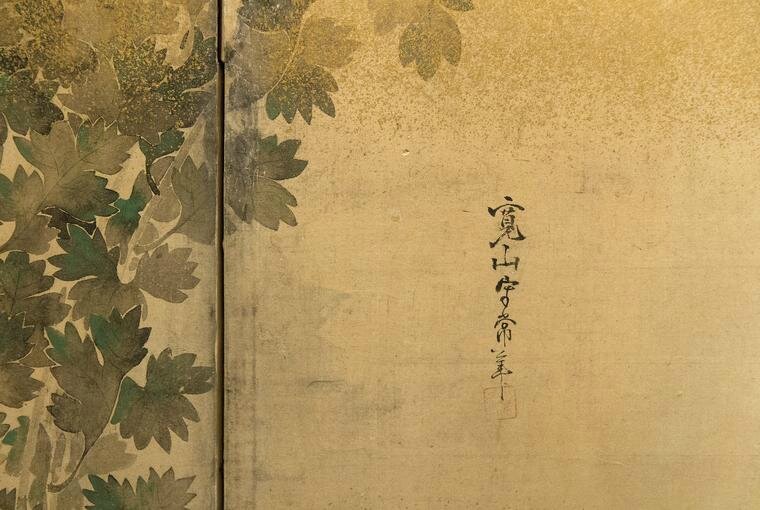 寛山守常筆